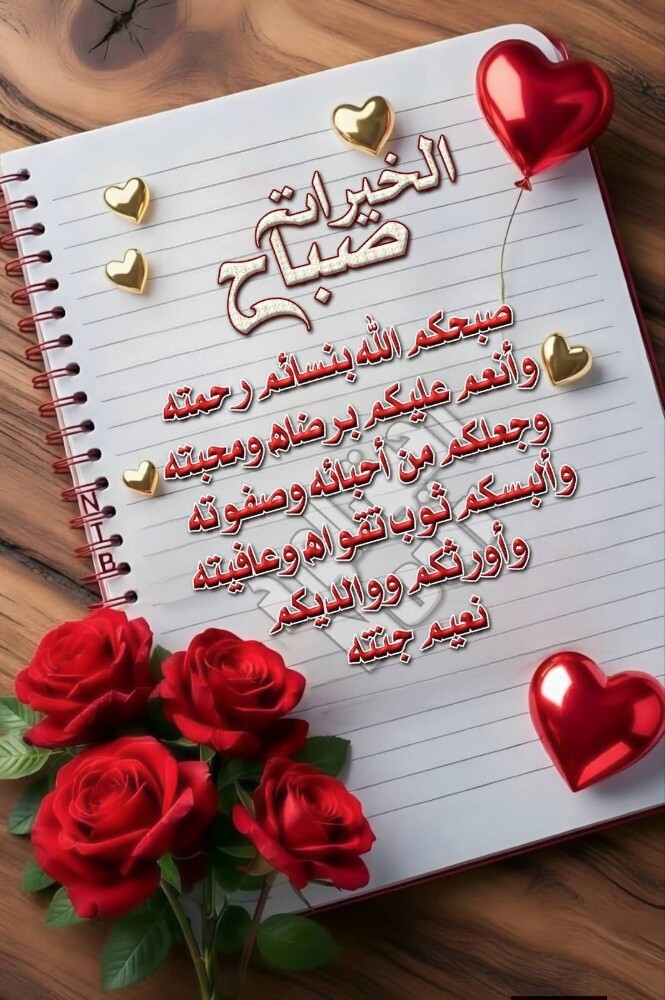 صباح
الخيرات
صبحكم الله بنسائم رحمته
وأنعم عليكم برضاه ومحبته
وجعلكم من أحبائه وصفوته
وألبسكم ثوب تقواه وعافيته
وأورثكم ووالديكم
نعيم جنته
NTB